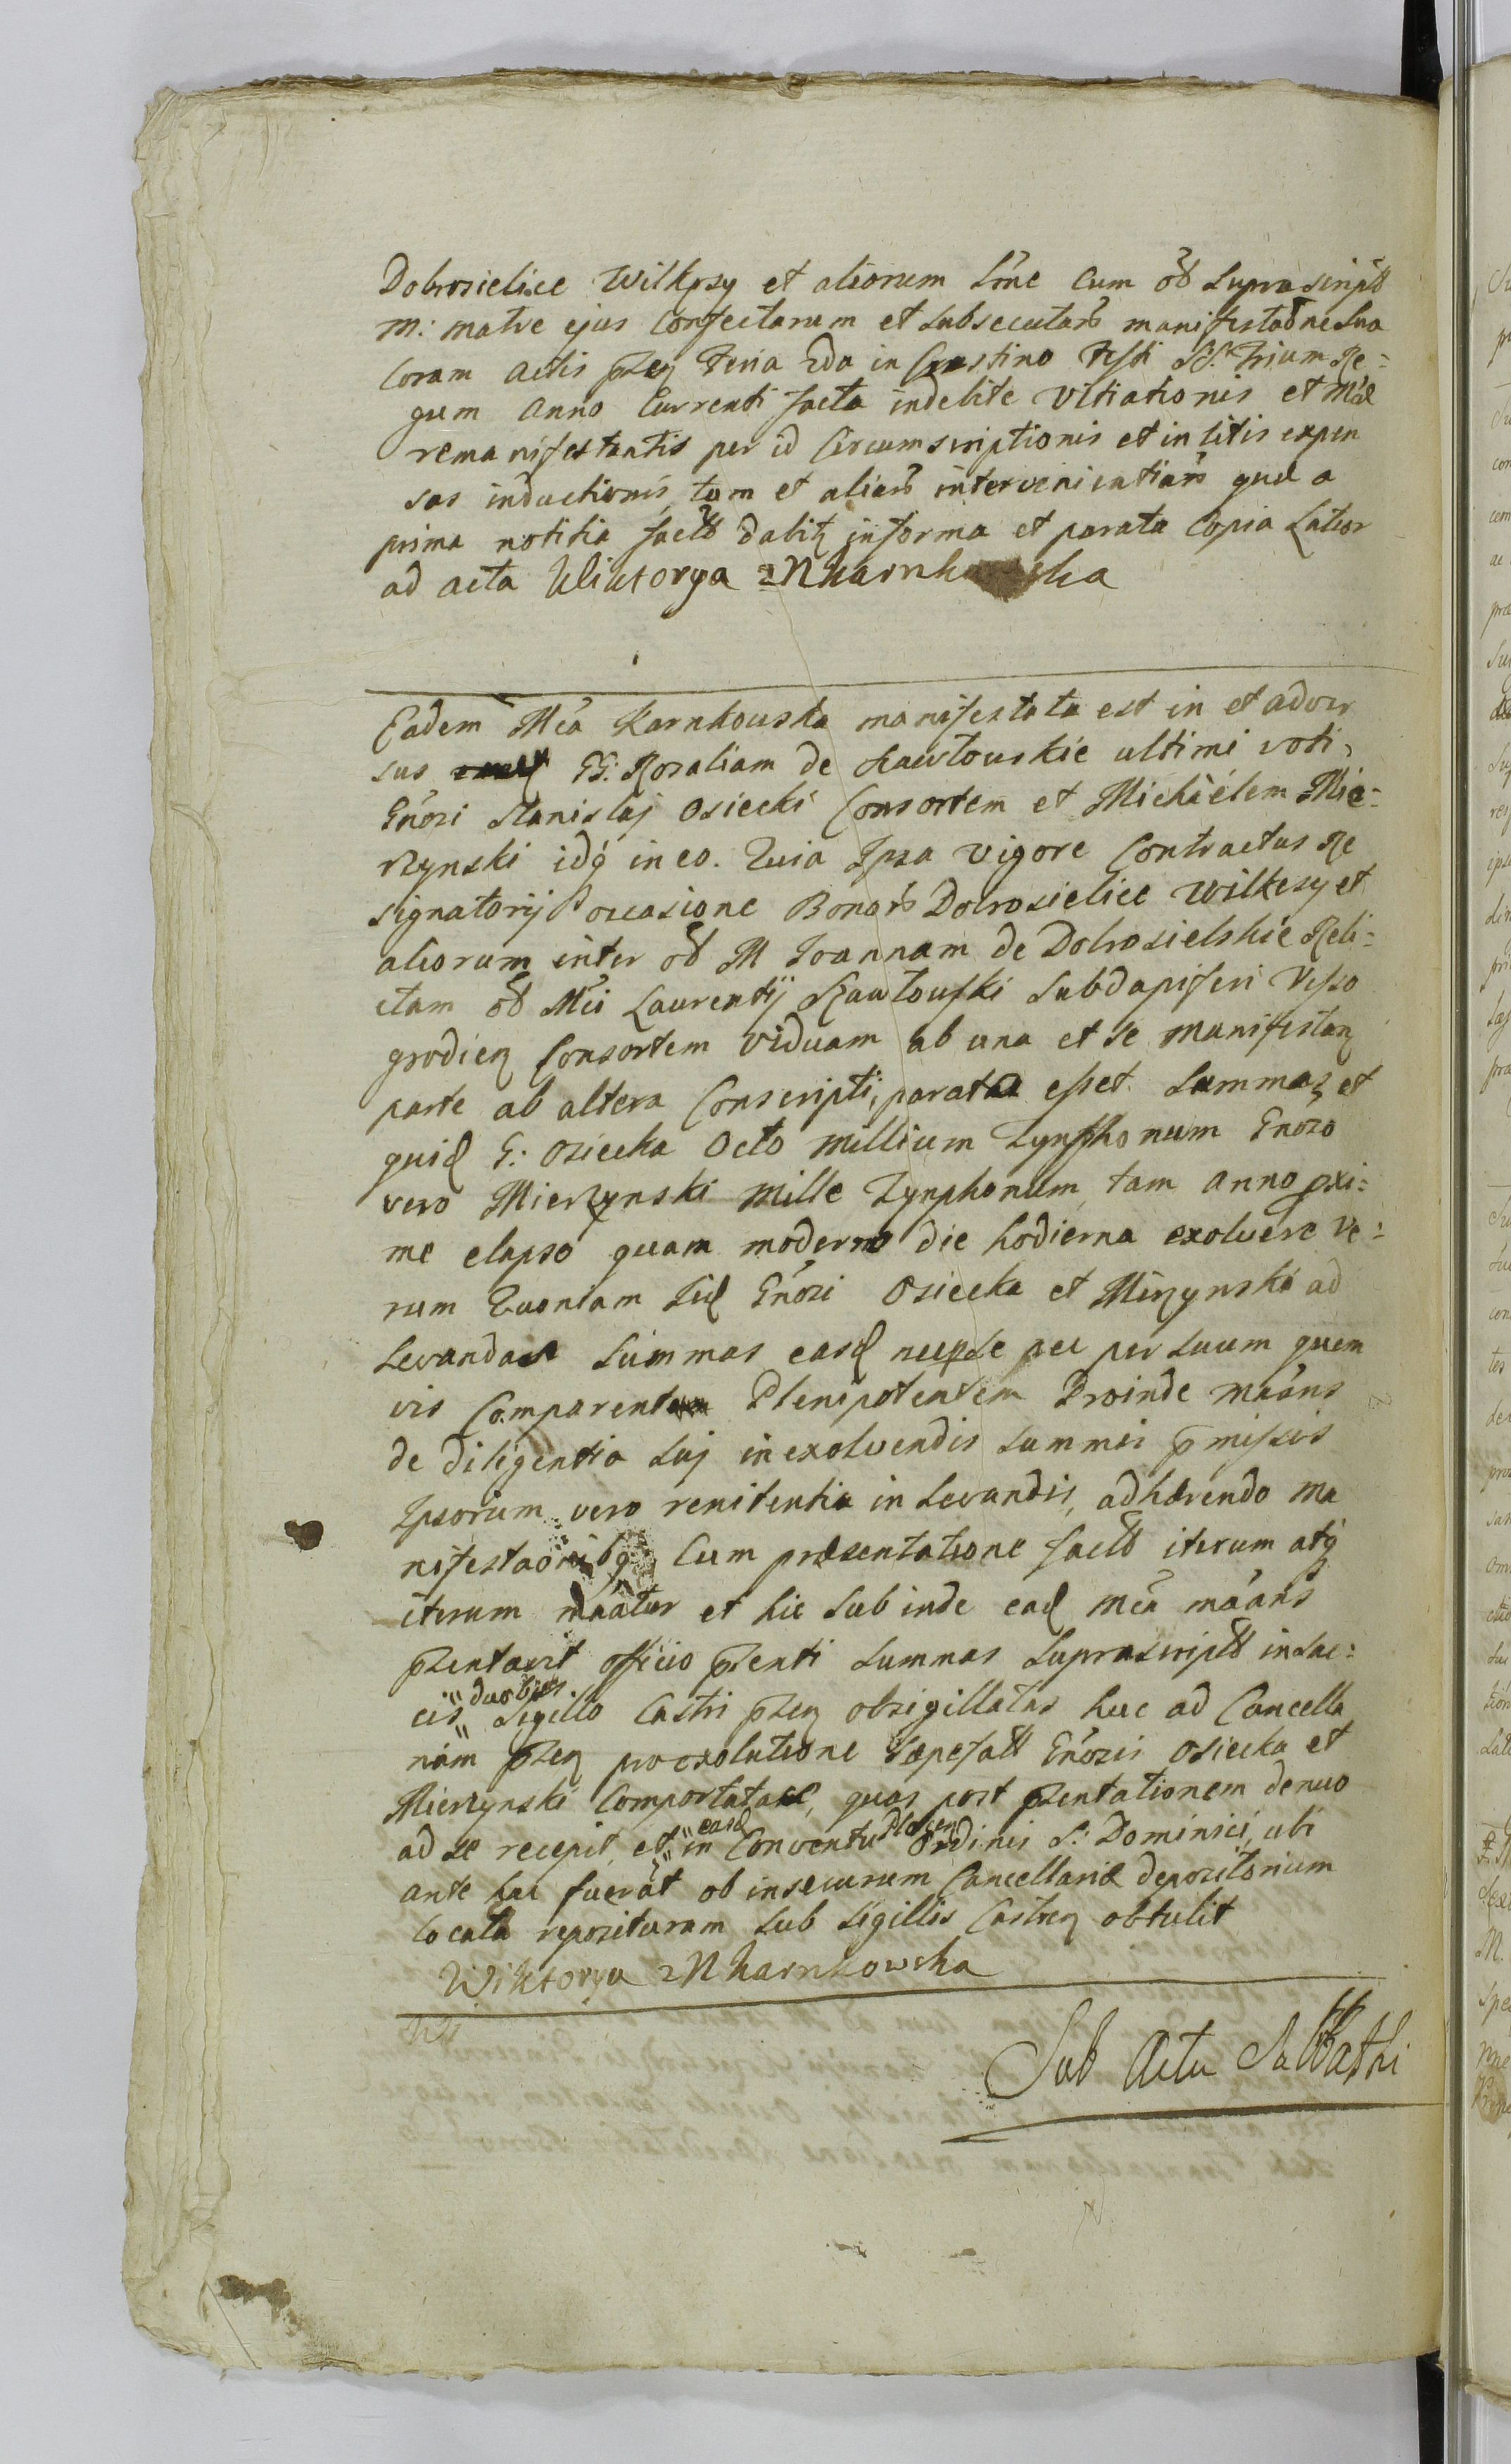 Dobrosielice Wilkęsy et aliorum Sōne Cum oƀ Suprascriptt
M: matre ejus Confectarum et Subsecutarƀ manifestaōne Sua
Coram Actis pƶeƶ Feria 2da in Crastino Festi SS. Trium Re-
gum Anno Currenti facta indebite Vitiationis et Mae
remanifestantis per id Circumscriptionis et in litis expen
sas inductionis, tum et aliarƀ intervenientiarƀ quae a
prima notitia factt dabitƶ in forma et parata Copia Latior
ad acta Wiktorya z N karnkowska
Eadem Mca Karnkowska manifestata est in et adver
sus GG. Rozaliam de Rawłowskie ultimi voti,
Gn̄osi Stanislaj Osiecki Consortem et Michaélem Mie-
rzynski idq́ in eo. Quia Ipsa vigore Contractus Re
signatorij occasione Bonarƀ Dobrosielice Wilkęsy et
aliorum inter oƀ M Joannam de Dobrosielskie Reli-
ctam oƀ Mci Laurentij Rawłowski Subdapiferi Visso
grodieƶ Consortem viduam ab una et se manifestanƶ
parte ab altera Conscripti, parata esset. Summas, et
quid G: Osiecka Octo millium Zynphonum Gn̄oso
vero Mierzynski Mille Zynphonum tam anno pxi-
me elapso quam moderno die hodierna exolvere ve-
rum Quoniam iid Gn̄osi Osiecka et Mirzynski ad
Levandas Summas easd neq̄ se nec per suum quem
vis Comparent Plenipotentem Proinde máans
de diligentia Suj in exolvendis Summis p̄missis
Ipsorum vero renitentia in Levandis, adhærendo ma
nifestaōnibq́ Cum præsentatione factt iterum atq́
iterum máatur et hic Subinde ead Mca máans
pƶentavit officio pƶenti Summas Suprascriptt in Sac-
cis " duobus " Sigillo Castri pƶeƶ obsigillatas huc ad Cancella
riam pƶeƶ pro exolutione sæpefatt Gn̄osis Osiecka et
Mierzynski Comportatas, quas post pƶentationem denuo
ad se recepit, et " easd " in Conventu Plocen Ordinis S: Dominici, ubi
ante hac fuerāt ob insecurum Cancellariæ depositorium
Locata reposituram Sub Sigillis Castreƶ obtulit
Wiktorya z N karnkowska
Sub Actu Sabbathi